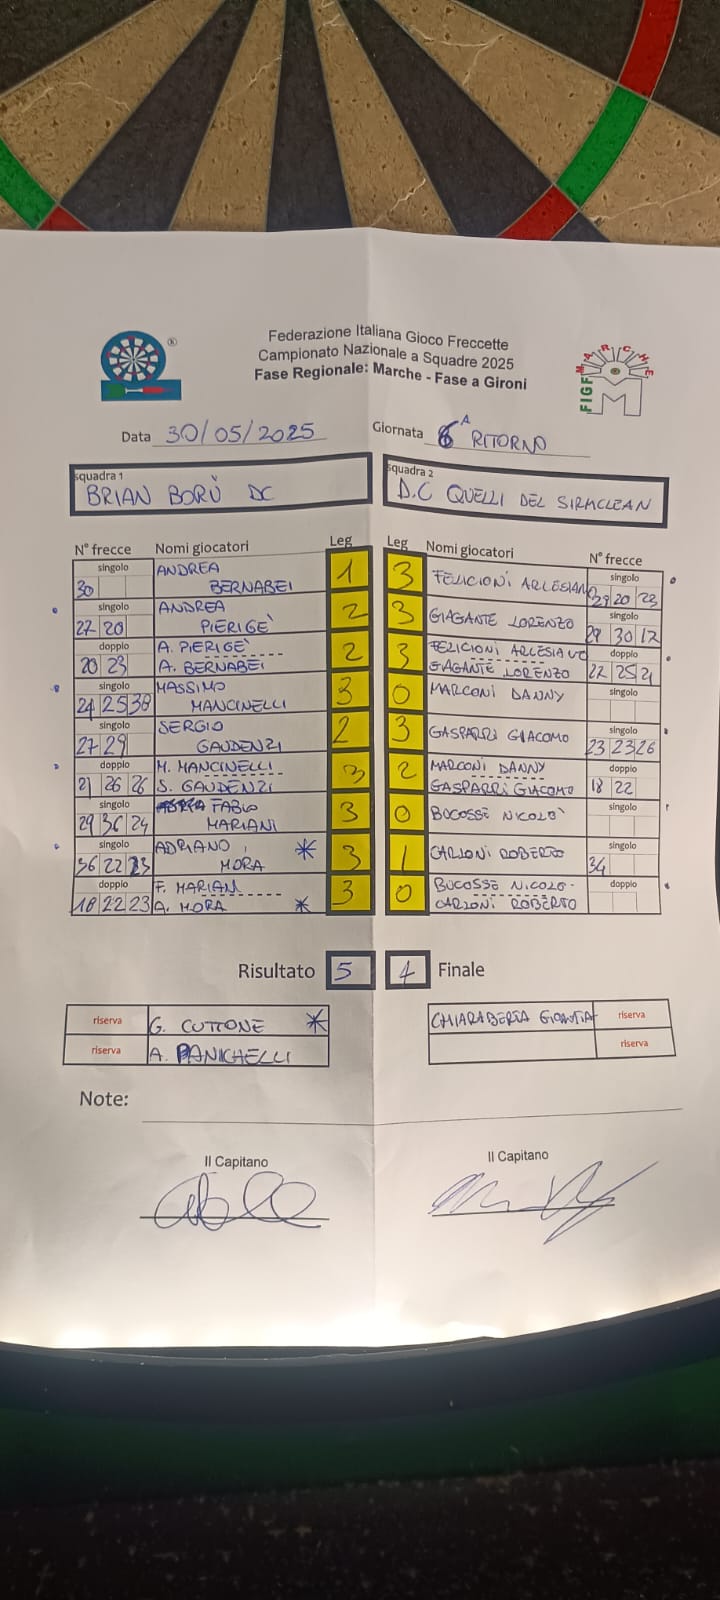 Federazione Italiana Gioco Freccette
Campionato Nazionale a Squadre 2025
Fase Regionale: Marche - Fase a Gironi
®
MARCHE
FIGF M
Data 30/05/2025 Giornata 6ᴬ RITORNO
squadra 1
BRIAN BORÙ DC
squadra 2
D.C QUELLI DEL SIRACLEAN
N° frecce Nomi giocatori Leg Leg Nomi giocatori N° frecce
singolo ANDREA 1 3 FELICIONI ARLESIANO singolo
30 BERNABEI 29 20 23
singolo ANDREA 2 3 GIAGANTE LORENZO singolo
22 20 PIERIGÈ 29 30 17
doppio A. PIERIGÈ 2 3 FELICIONI ARLESIANO doppio
20 23 A. BERNABEI GIAGANTE LORENZO 22 25 21
singolo MASSIMO 3 0 MARCONI DANNY singolo
24 25 38 MANCINELLI
singolo SERGIO 2 3 GASPARRI GIACOMO singolo
27 29 GAUDENZI 23 23 26
doppio M. MANCINELLI 3 2 MARCONI DANNY doppio
21 26 26 S. GAUDENZI GASPARRI GIACOMO 18 22
singolo FABIO 3 0 BUCOSSE NICOLÒ singolo
29 36 24 MARIANI
singolo ADRIANO * 3 1 CARLONI ROBERTO singolo
36 22 23 MORA 34
doppio F. MARIANI 3 0 BUCOSSE NICOLO- doppio
18 22 23 A. MORA * CARLONI ROBERTO
Risultato 5 4 Finale
riserva G. CUTTONE * CHIARABERTA riserva
riserva A. PANICHELLI riserva
Note:
Il Capitano Il Capitano